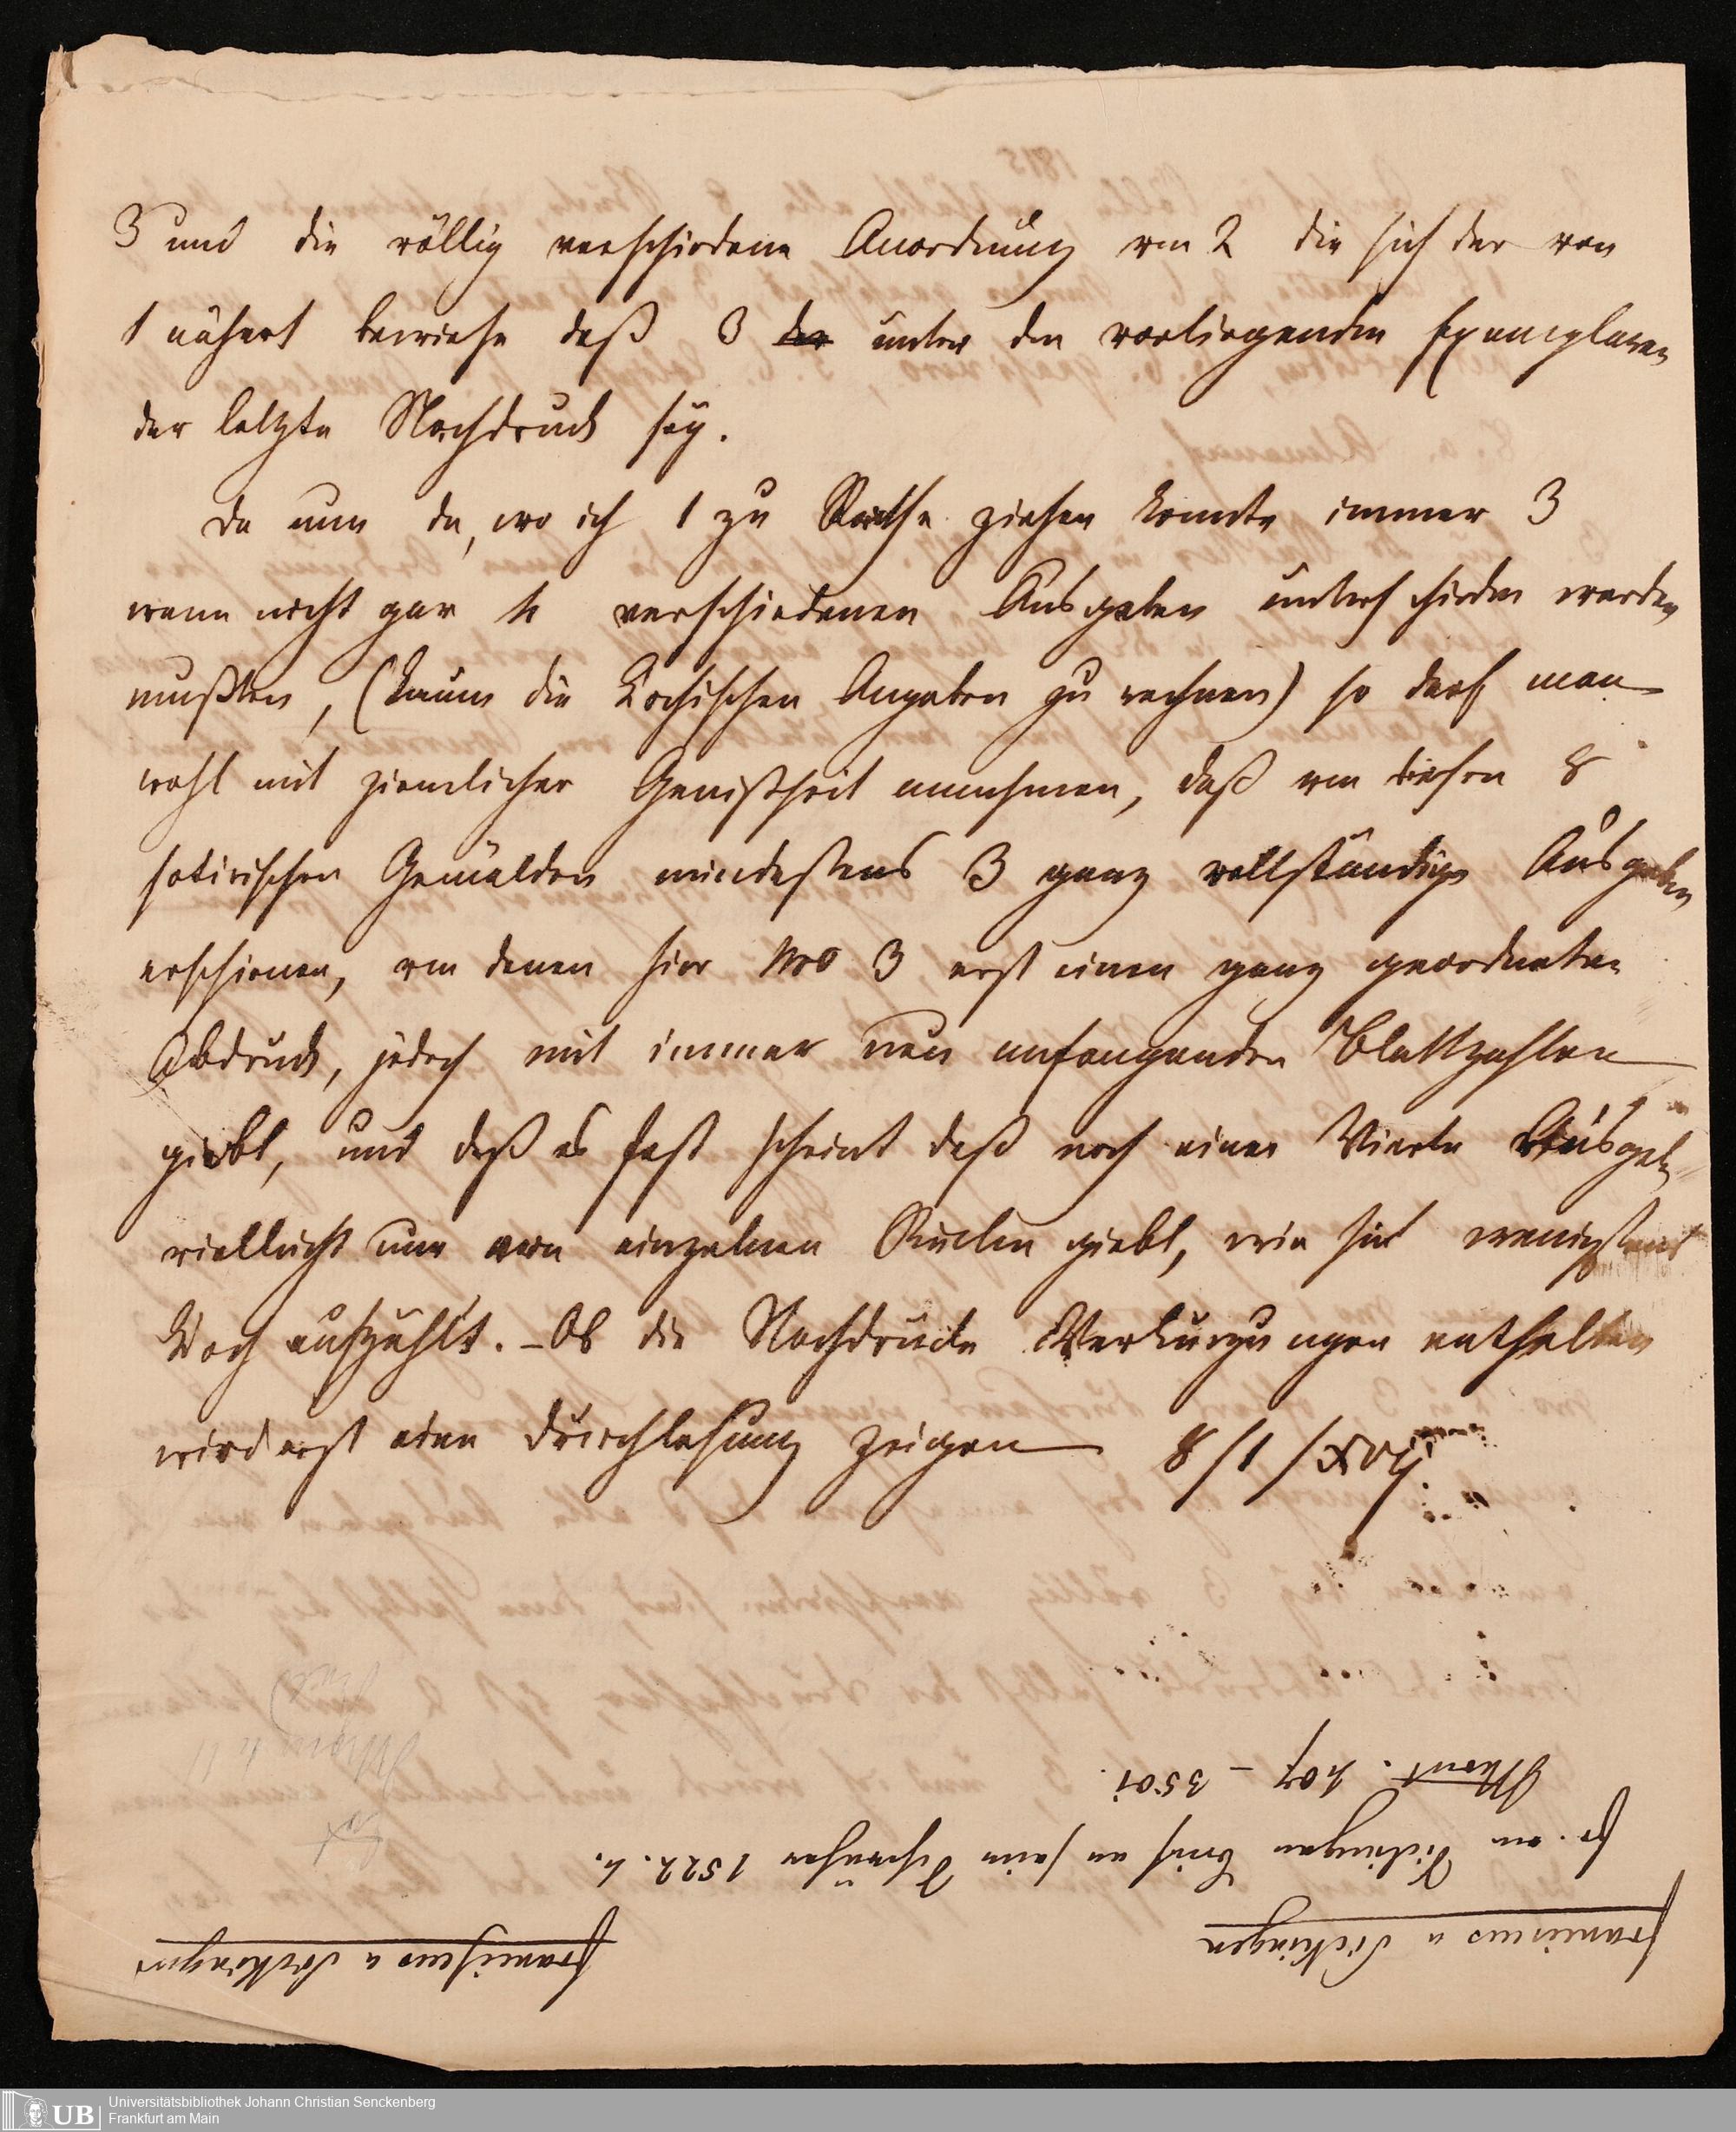 3 und die völlig verschiedene Anordnung von 2 die sich der von
1 nähert bewiese daß 3 der unter den vorliegenden Exemplaren
der letzte Nachdruck sey.
Da nun da, wo ich 1 zu Rathe ziehen konnte immer 3
wenn nicht gar 4 verschiedenen Ausgaben unterschieden werden
mußten, (kaum die Kochischen Angaben zu rechnen) so darf man
wohl mit ziemlicher Gewißheit annehmen, daß von diesen 8
satirischen Gemälden mindestens 3 ganz vollständige Ausgaben
erschienen, von denen hier Nro 3 erst einen ganz geordneten
Abdruck, jedoch mit immer neu anfangenden Blattzahlen
giebt, und daß es fast scheint daß noch eine Vierte Ausgabe
vielleicht nur von einzelnen Stücken giebt, wie sie wenigstens
Koch aufzählt. – Ob die Nachdrucke Verkürzungen enthalten
wird erst eine Durchlesung zeigen 8/1/XVij.
Franciscus v Sickingen
Franciscus v Sickingen
Fr. von Sickingen Brief an sein Schwäher 1522. 4.
407 – 3501.